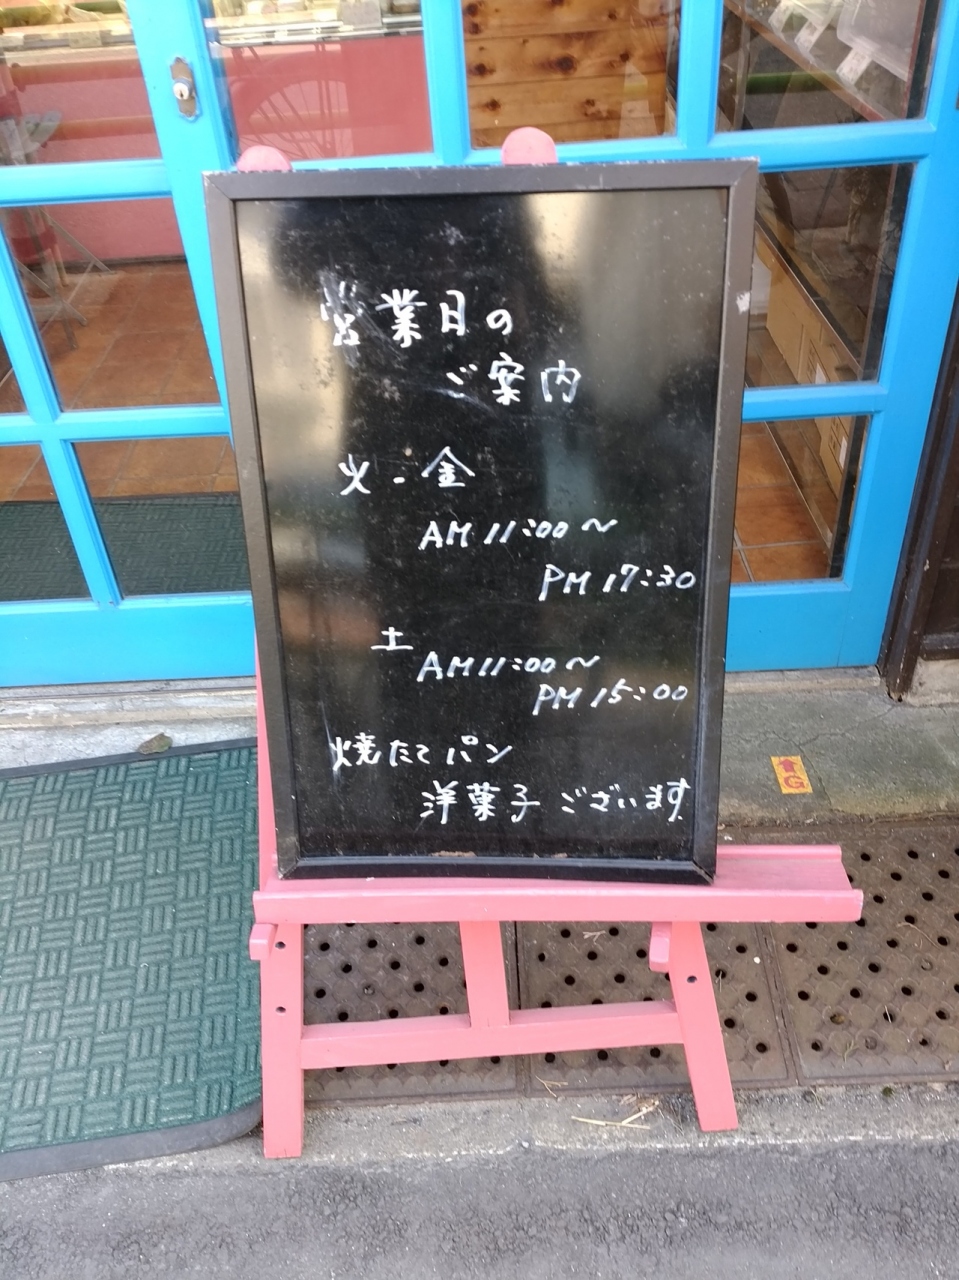 営業日の
ご案内
火-金
AM 11:00〜
PM 17:30
土
AM 11:00〜
PM 15:00
焼たてパン
洋菓子 ございます
G